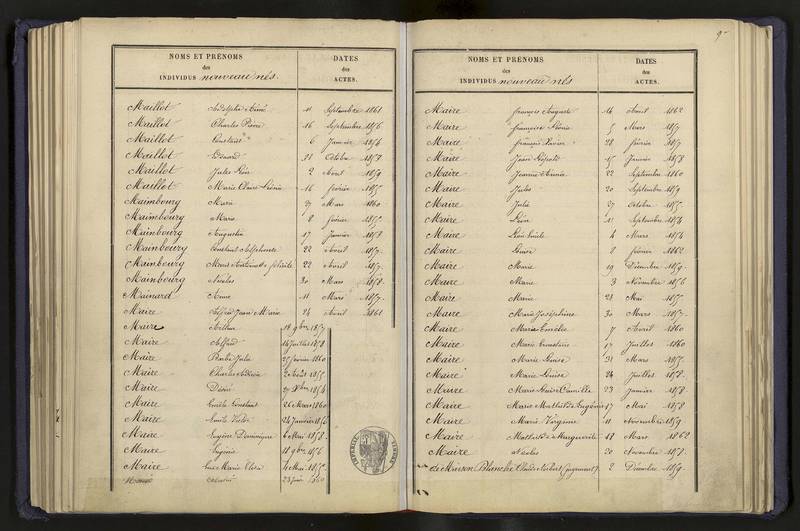 NOMS ET PRÉNOMS
des
INDIVIDUS nouveau nés.
DATES
des
ACTES.
Maillot Adolphe Aimé 11 Septembre 1861
Maillot Charles Pierre 16 Septembre 1856
Maillot Constant 6 Janvier 1856
Maillot Edouard 21 Octobre 1858
Maillot Jules Léon 2 Avril 1859
Maillot Marie Claire 16 février 1855
Maimbourg Marie 27 Mars 1860
Maimbourg Marie 8 février 1855
Mainbourg Augustin 17 Janvier 1858
Mainbourg Constant Alphonse 22 Avril 1857
Mainbourg Félicité 22 Avril 1857
Mainbourg Nicolas 30 Mars 1858
Mainard Anne 11 Mars 1857
Maire Alfred Jean Marie 24 Avril 1861
Maire Arthur 18 9bre 1857
Maire Alfred 14 Juillet 1858
Maire Barbe Julie 25 février 1860
Maire Charles 2 Août 1855
Maire Désiré 1854
Maire Emile Constant 26 Mars 1860
Maire Emile Victor 24 Janvier 1856
Maire Eugène Dominique 6 Mai 1858
Maire Eugénie 18 9bre 1856
Maire Marie 4 Mai 1855
Maire 23 Juin 1860
9
NOMS ET PRÉNOMS
des
INDIVIDUS nouveau nés
DATES
des
ACTES.
Maire françois Auguste 14 Avril 1862
Maire françoise 5 Mars 1857
Maire françois Xavier 28 février 1857
Maire Jean Léopold 15 Janvier 1858
Maire Jeanne 22 Septembre 1860
Maire Jules 20 Septembre 1859
Maire Julie 27 Octobre 1855
Maire Léon 11 Septembre 1854
Maire Léon Emile 4 Mars 1854
Maire Louise 8 février 1862
Maire Marie 19 Décembre 1859
Maire Marie 3 Novembre 1856
Maire Marie 28 Mai 1855
Maire Marie Joséphine 30 Mars 1857
Maire Marie Emélie 7 Avril 1860
Maire Marie Ernestine 17 Juillet 1860
Maire Marie Louise 31 Mars 1855
Maire Marie Louise 24 Juillet 1858
Maire Marie Louise Camille 23 Janvier 1858
Maire Marie Mathilde Eugénie 17 Mai 1858
Maire Marie Virginie 11 Novembre 1859
Maire Mathilde Marguerite 18 Mars 1862
Maire Nicolas 20 Novembre 1858
de Maison Blanche Charles Norbert (jugement) 2 Décembre 1859